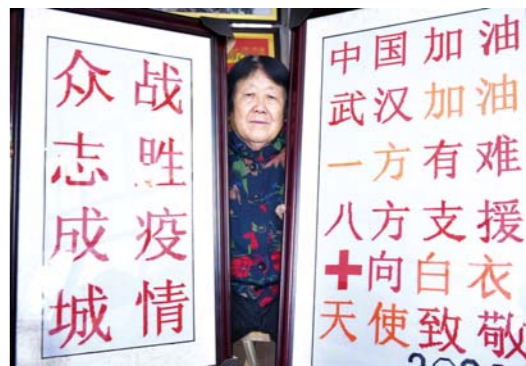 众志成城
战胜疫情
中国加油
武汉加油
一方有难
八方支援
✚向白衣
天使致敬